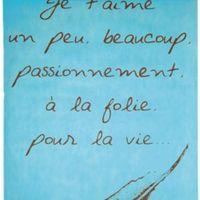 Je t'aime
un peu. beaucoup.
passionnement.
à la folie.
pour la vie...